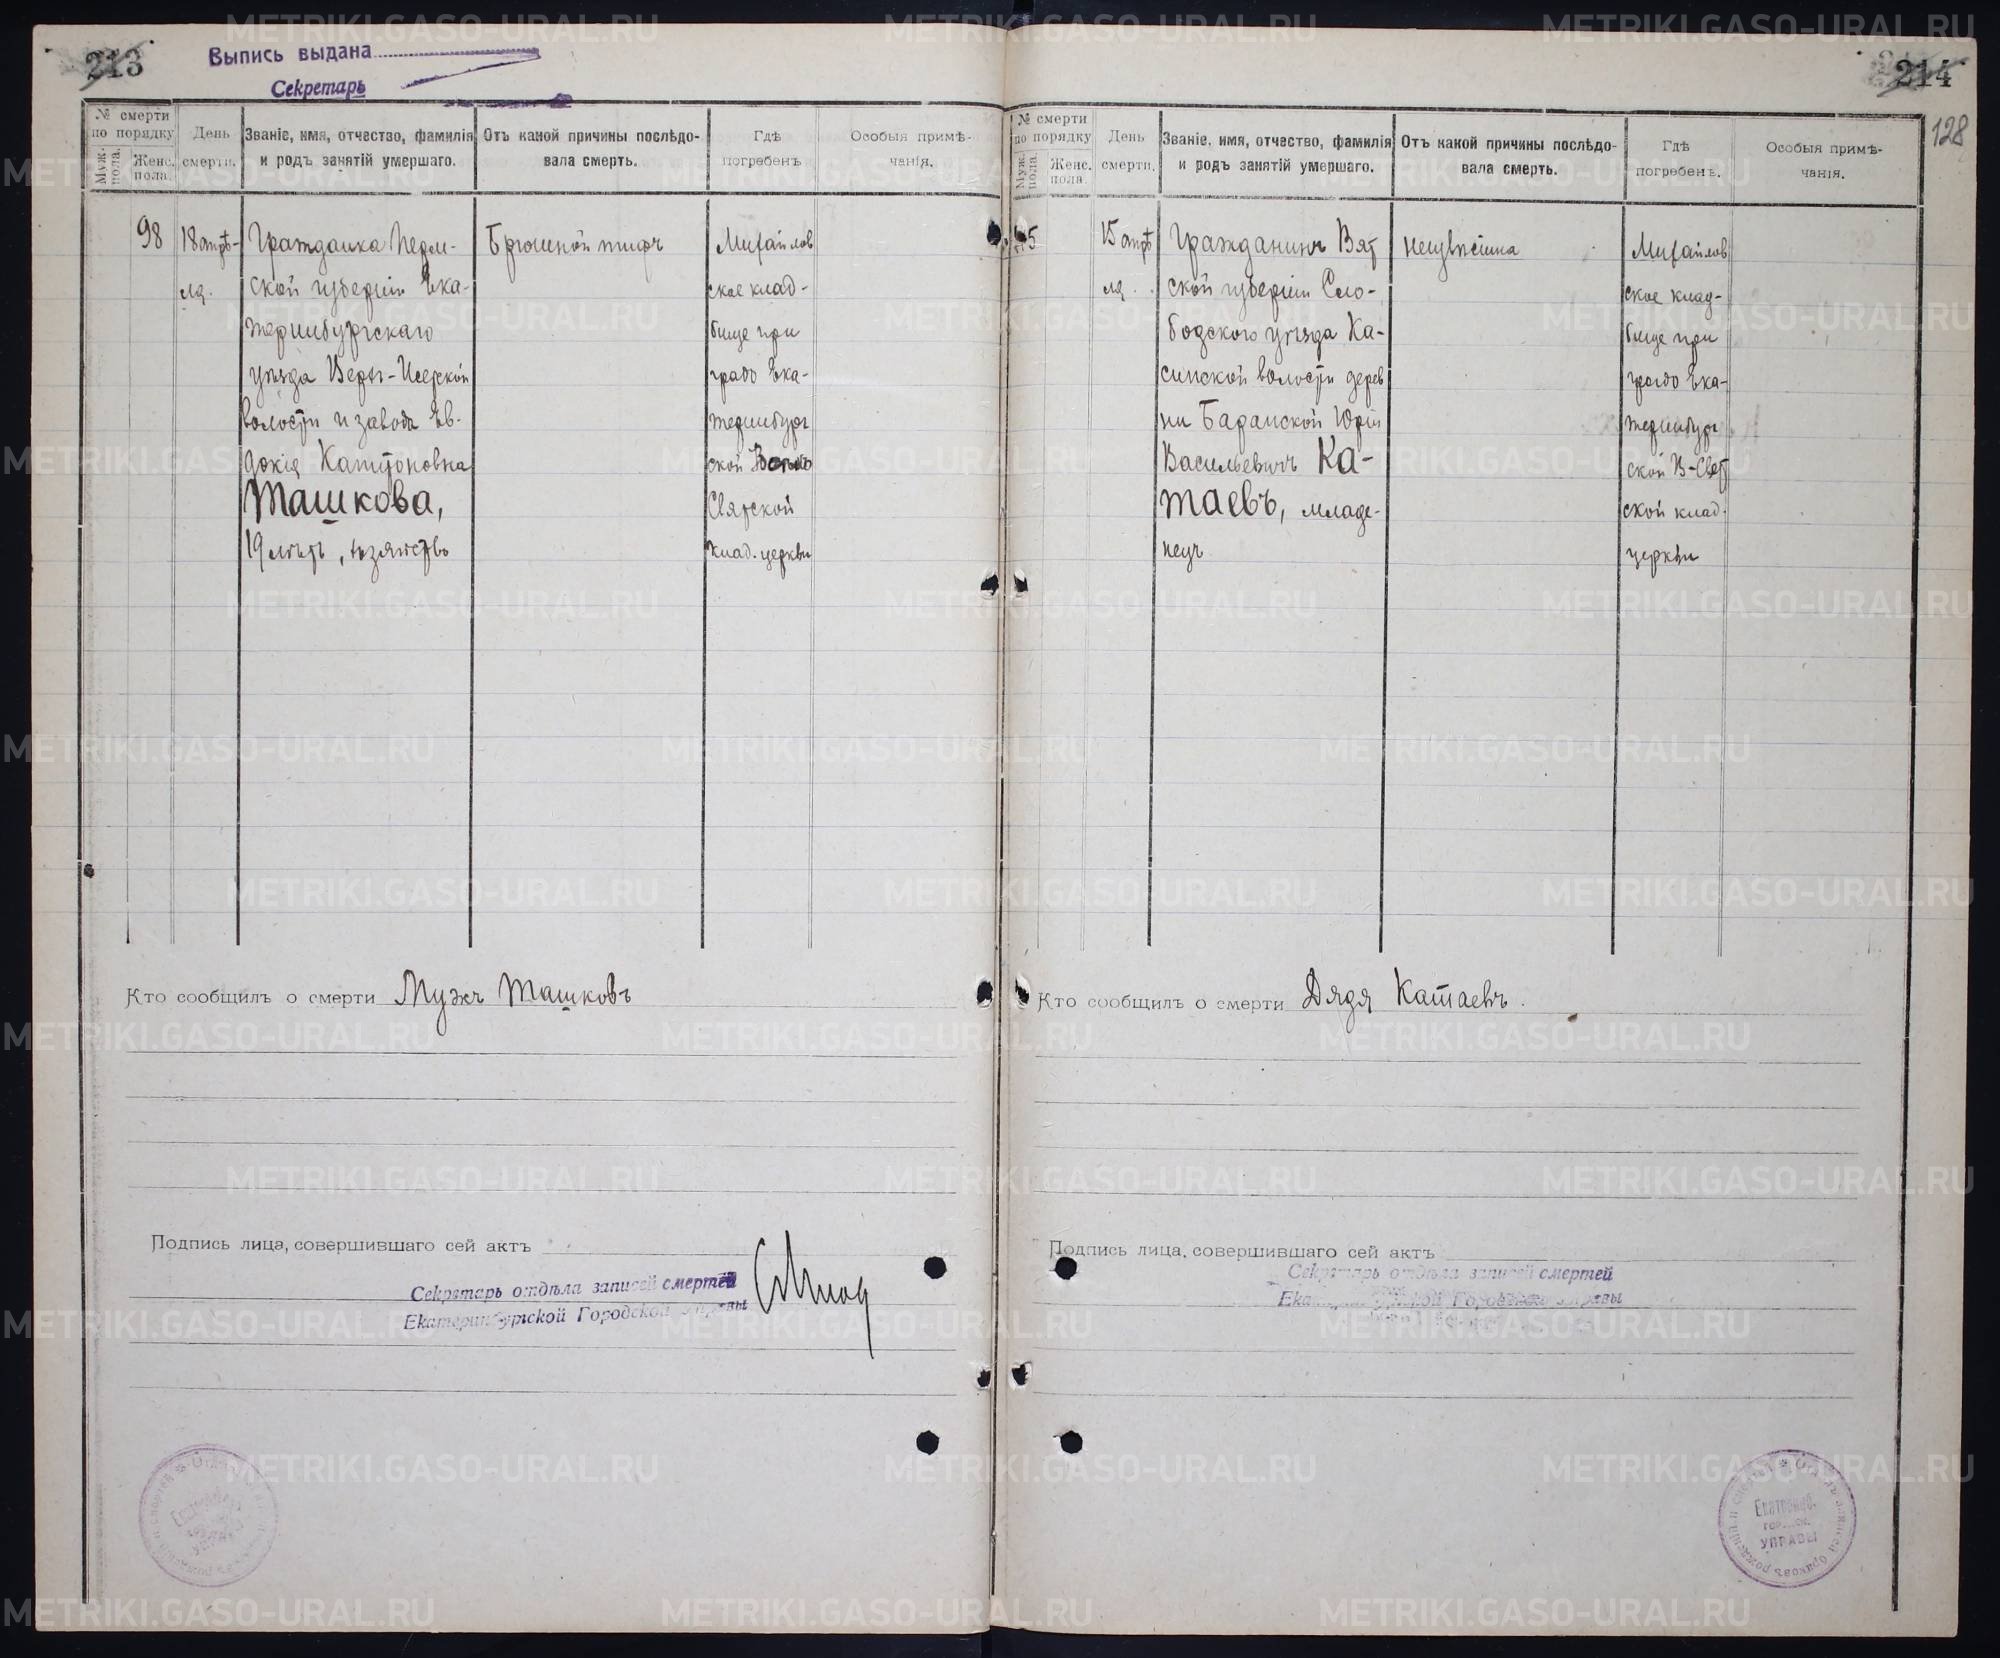 213
Выпись выдана
Секретарь
№ смерти по порядку
Муж. пола.
Женс. пола.
День смерти.
Званіе, имя, отчество, фамилія и родъ занятій умершаго.
Отъ какой причины послѣдовала смерть.
Гдѣ погребенъ
Особыя примѣчанія.
98
18 апрѣ-
ля.
Гражданка Перм-
ской губерніи Ека-
теринбургскаго
уѣзда Верхъ-Исетской
волости и завода Ев-
докія Капитоновна
Ташкова,
19 лѣтъ, хозяйство
Брюшной тифъ
Михайлов
ское клад-
бище при
градо Ека-
теринбург
ской
Святской
клад. церкви
Кто сообщилъ о смерти Мужъ Ташковъ
Подпись лица, совершившаго сей актъ
Секретарь отдѣла записей смертей
Екатеринбургской Городской Управы
214
128
№ смерти по порядку
Муж. пола.
Женс. пола.
День смерти.
Званіе, имя, отчество, фамилія и родъ занятій умершаго.
Отъ какой причины послѣдовала смерть.
Гдѣ погребенъ.
Особыя примѣчанія.
15 апрѣ
ля.
Гражданинъ Вят
ской губерніи Сло-
бодского уѣзда Ка-
синской волости дерев
ни Баранской Юрій
Васильевичъ Ка-
таевъ, младе-
нецъ
неизвѣстна
Михайлов
ское клад-
бище при
градо Ека-
теринбург
ской В-Свят
ской клад.
церкви
Кто сообщилъ о смерти Дядя Катаевъ.
Подпись лица, совершившаго сей актъ
Секретарь отдѣла записей смертей
Екатеринбургской Городской Управы
Екатеринб.
городск.
УПРАВЫ
METRIKI.GASO-URAL.RU